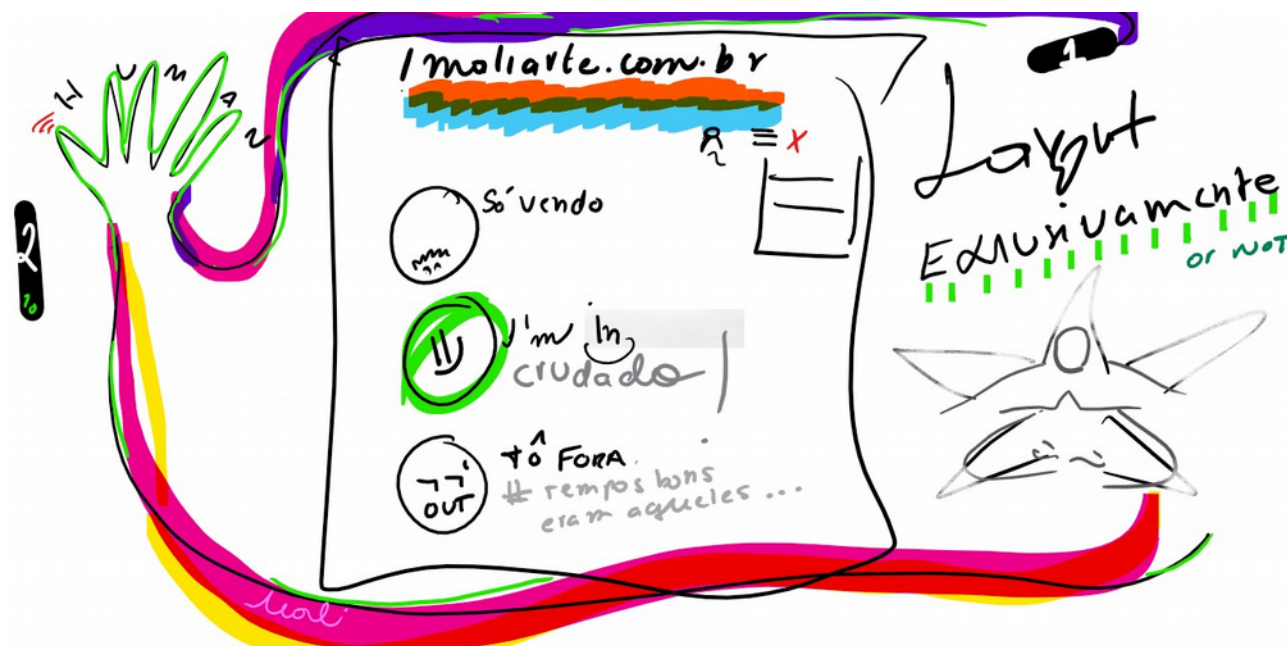 H U M A N
1moliarte.com.br
1
Layout
Exlusivamente
or NOT
Só vendo
I'm in
crudado
tô FORA
OUT
# rempos bons
eram aqueles ...
2
10